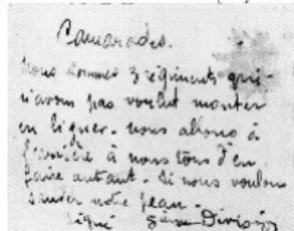 Camarades.
Nous sommes 3 régiments qui
n'avons pas voulut monter
en lignes. nous allons à
l'arrière à nous tous d'en
faire autant. si nous voulons
sauver notre peau.
Signé 5ème Division